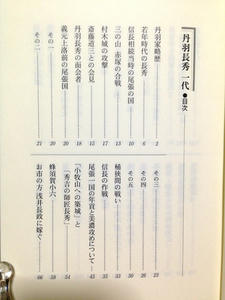 『丹羽長秀 一代』●目次
丹羽家略歴 2
若年時代の長秀 6
信長相続当時の尾張の国 10
三の山 赤塚の合戦 13
村木城の攻撃
斎藤道三との会見 15
丹羽長秀の面会者 18
義元上洛前の尾張国 20
その一 20
その二 21
その三
その四 26
その五 30
桶狭間の戦い 33
信長の作戦 35
尾張一国の年貢と美濃攻めについて 45
「小牧山への築城」と
「秀吉の師匠長秀」 54
蜂須賀小六
お市の方浅井長政に嫁ぐ 66